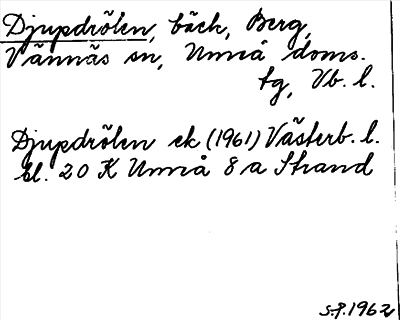 Djupdrölen, bäck, Berg,
Vännäs sn, Umeå doms.
tg, Vb. l.
Djupdrölen ek (1961) Västerb. l.
bl. 20 K Umeå 8 a Strand
S.P. 1962